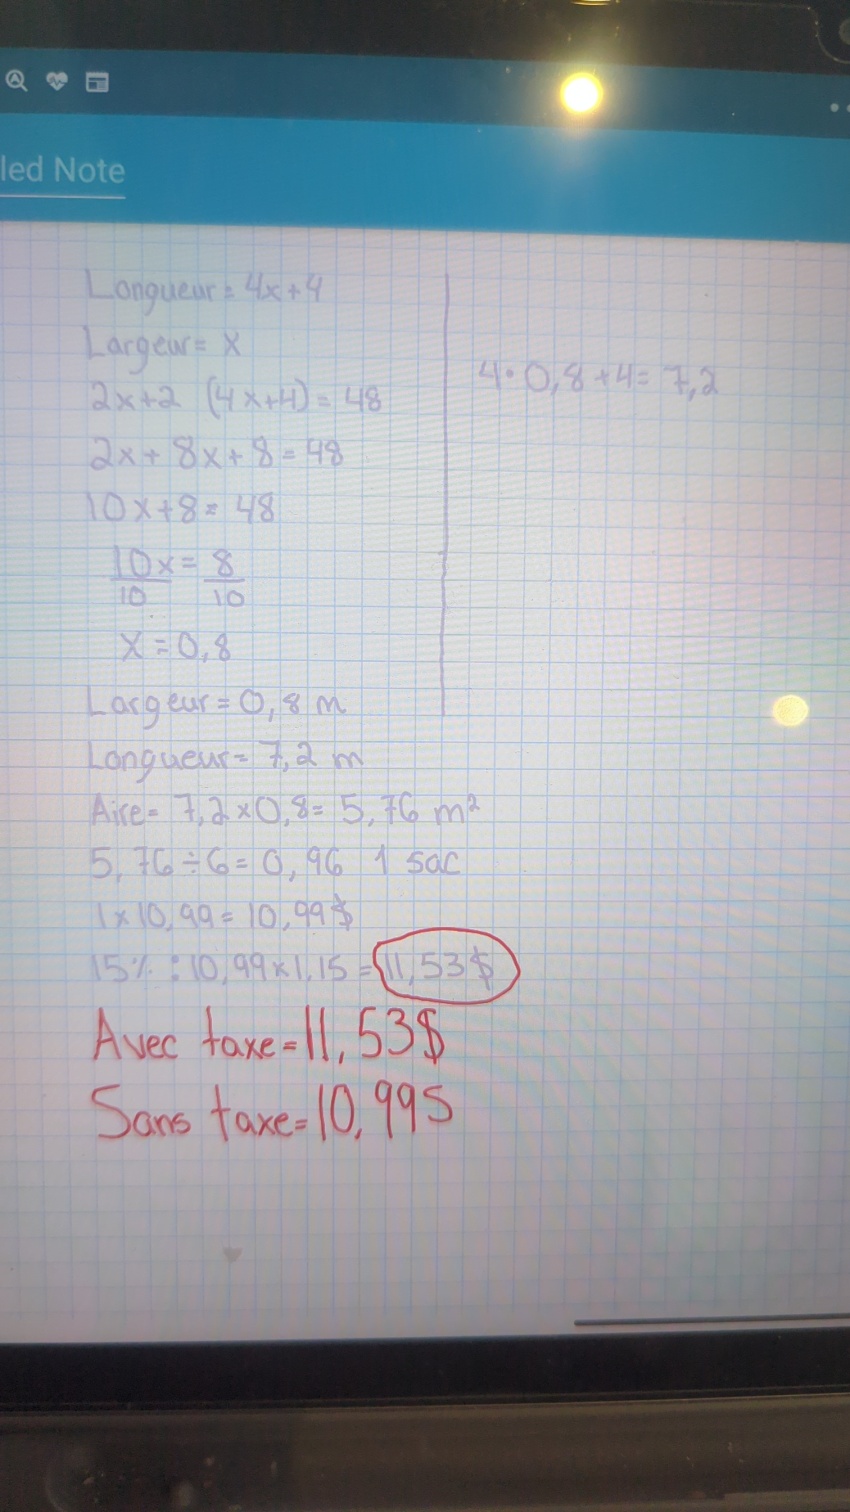 led Note
Longueur = 4x+4
Largeur = x
2x+2 (4x+4) = 48
2x + 8x + 8 = 48
10x+8 = 48
10x = 8
10 10
x = 0,8
Largeur = 0,8 m
Longueur = 7,2 m
Aire = 7,2 × 0,8 = 5,76 m²
5,76 ÷ 6 = 0,96 1 sac
1 × 10,99 = 10,99$
15% : 10,99 × 1,15 = 11,53$
Avec taxe = 11,53$
Sans taxe = 10,99S
4 · 0,8 + 4 = 7,2